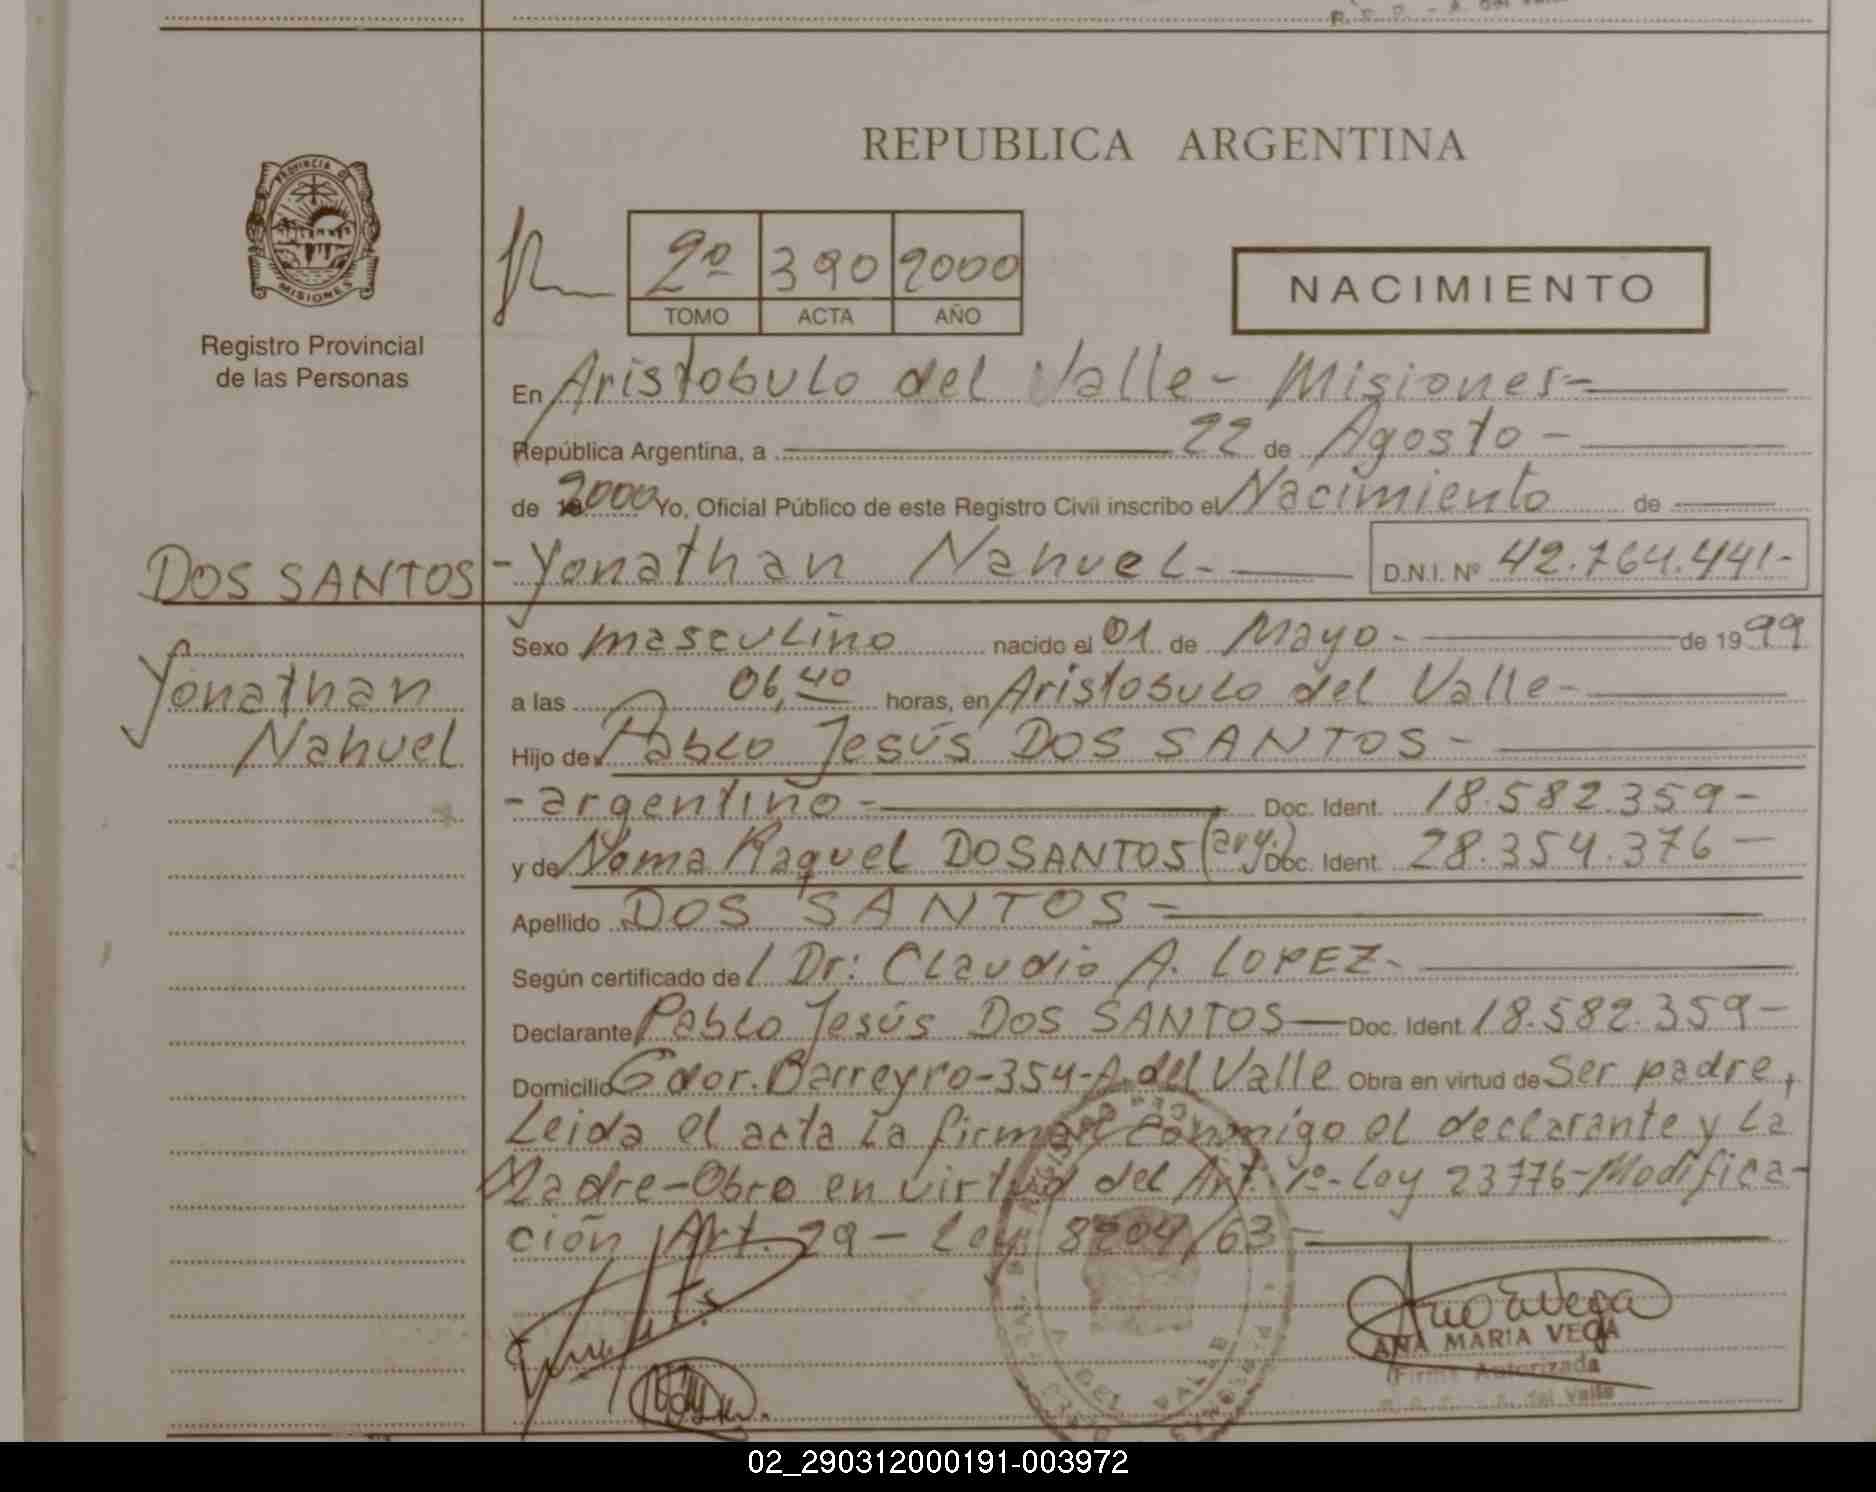 REPUBLICA ARGENTINA
PROVINCIA DE
MISIONES
Registro Provincial
de las Personas
2º 390 2000
TOMO ACTA AÑO
NACIMIENTO
En Aristobulo del Valle - Misiones -
República Argentina, a 22 de Agosto -
de 2000 Yo, Oficial Público de este Registro Civil inscribo el Nacimiento de
DOS SANTOS - Yonathan Nahuel - D.N.I. Nº 42.764.441-
Yonathan
Nahuel
Sexo masculino nacido el 01 de Mayo - de 1999
a las 06,40 horas, en Aristobulo del Valle -
Hijo de Pablo Jesús DOS SANTOS -
- argentino - Doc. Ident. 18.582.359 -
y de Noma Raquel DOSANTOS (arg.) Doc. Ident. 28.354.376 -
Apellido DOS SANTOS -
Según certificado de / Dr: Claudio A. LOPEZ -
Declarante Pablo Jesús DOS SANTOS - Doc. Ident. 18.582.359 -
Domicilio Gdor. Barreyro-354-A. del Valle Obra en virtud de Ser padre,
Leida el acta la firman conmigo el declarante y la
Madre-Obro en virtud del Art. 1º- Ley 23776-Modifica-
ción Art. 29 - Ley 8204/63 -
ANA MARIA VEGA
Firma Autorizada
A. del Valle
02_290312000191-003972